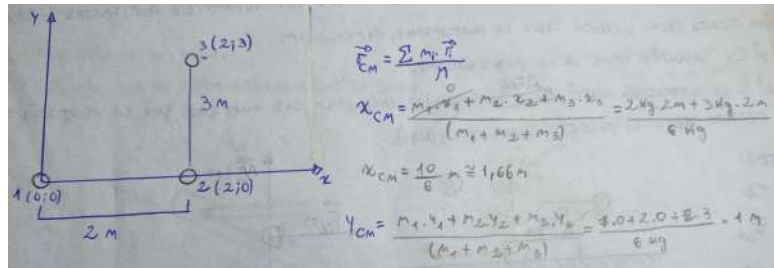 Y
3 (2;3)
3 m
1 (0;0)
2 (2;0)
x
2 m
r⃗CM = Σ mi. r⃗i / M
0
xCM = m1.x1 + m2.x2 + m3.x3 / (m1 + m2 + m3) = 2kg.2m + 3kg.2m / 6 kg
xCM = 10/6 m ≅ 1,66m
YCM = m1.y1 + m2.y2 + m3.y3 / (m1 + m2 + m3) = 1.0+2.0+ 3 / 6 kg = 1 m